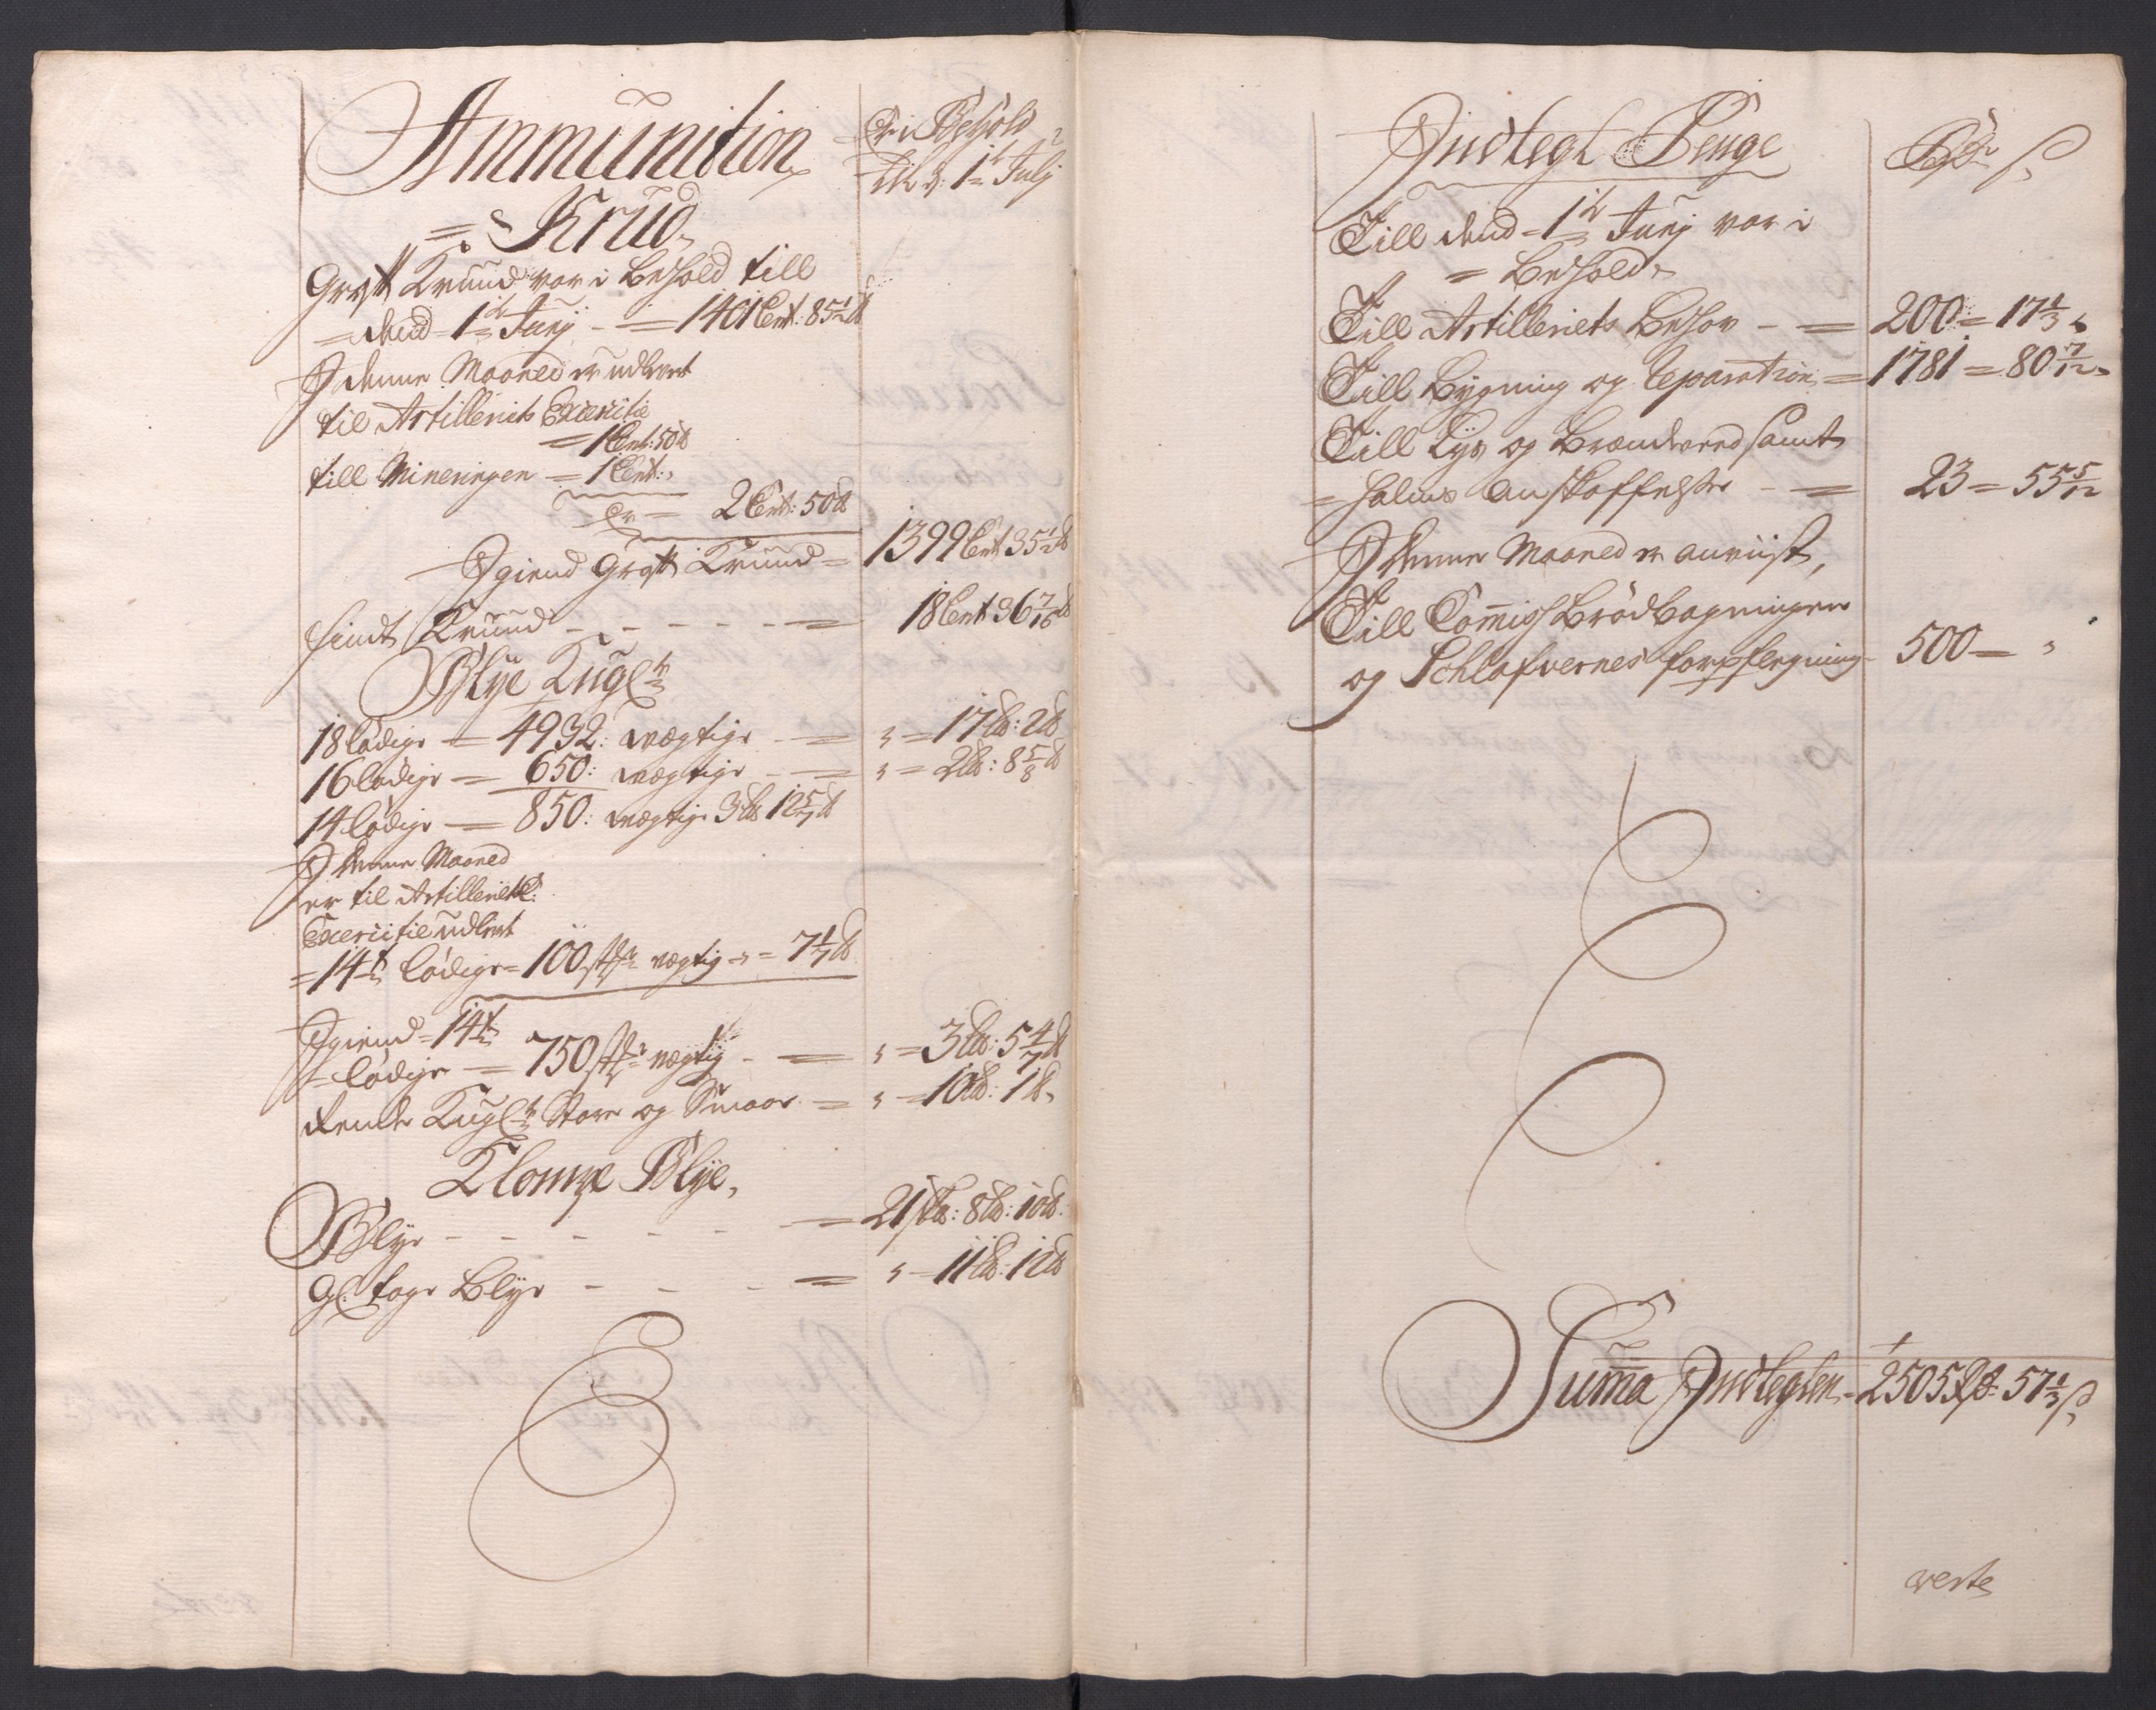 Ammunition
Er i Behold
til d: 1te Julj
= Krud
Grofft Kruud var i behold till
= dend 1te Junj - = 1401 Cent: 85 1/2 ℔
J denne Maaned er udleert
til Artilleriets Exercitie
= 1 Cent: 50 ℔
till Mineringen = 1 Cent:
Er = 2 Cent: 50 ℔
Jgiend Grofft Kruud = 1399 Cent 35 1/2 ℔
fiint Kruud - - - - - = 18 Cent 36 7/16 ℔
Blye Kugler
18 lødige = 4932: wægtige - = " = 17 L℔: 2 ℔
16 lødige = 650: wægtige - = " = 2 L℔: 8 5/8 ℔
14 lødige = 850: wægtige 3 L℔ 12 5/7 ℔
J denne Maaned
er til Artilleriets
Exercitie udleert
= 14 lødige = 100 st: wægtig = " = 7 1/7 ℔
Jgiend = 14
= lødige = 750 st: wægtig - = " = 3 L℔: 5 4/7 ℔
Kugler Store og Smaae = " = 10 L℔: 1 ℔
Klompe Blye,
Blye - - - - - = 21 sk℔: 8 L℔: 10 ℔:
Gl: tage Blye - - - = " = 11 L℔: 12 ℔
Jndtegt Penge
Rdr ß
Till dend = 1te Junj var i
= behold
Till Artilleriets behov - = 200 = 17 1/3
Till bygning og Reparation = 1781 = 80 7/12
Till Lys og brændeveed samt
= halms anskaffelse - = 23 = 55 5/12
J denne Maaned er anviist,
Till Commisbrødbagningen
og Schlafvernes forpflegning 500 = "
Summa Jndtegten = 2505 Rdr: 57 1/3 ß
verte